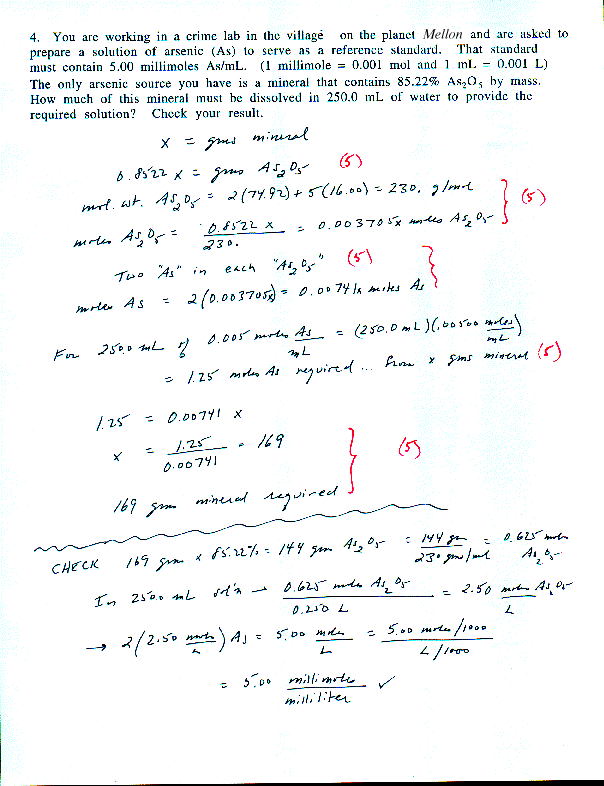 4. You are working in a crime lab in the village on the planet Mellon and are asked to
prepare a solution of arsenic (As) to serve as a reference standard. That standard
must contain 5.00 millimoles As/mL. (1 millimole = 0.001 mol and 1 mL = 0.001 L)
The only arsenic source you have is a mineral that contains 85.22% As₂O₅ by mass.
How much of this mineral must be dissolved in 250.0 mL of water to provide the
required solution? Check your result.
x = gms mineral
0.8522 x = gms As₂O₅ (5)
mol. wt. As₂O₅ = 2(74.92) + 5(16.00) = 230. g/mol
moles As₂O₅ = 0.8522 x / 230. = 0.003705x moles As₂O₅ (5)
Two "As" in each "As₂O₅" (5)
moles As = 2(0.003705x) = 0.00741x moles As
For 250.0 mL of 0.005 moles As / mL = (250.0 mL)(.00500 moles / mL)
= 1.25 moles As required ... from x gms mineral (5)
1.25 = 0.00741 x
x = 1.25 / 0.00741 = 169 (5)
169 gms mineral required
CHECK 169 gms x 85.22% = 144 gms As₂O₅ = 144 gm / 230 gm/mol = 0.625 moles As₂O₅
In 250.0 mL sol'n → 0.625 moles As₂O₅ / 0.250 L = 2.50 moles As₂O₅ / L
→ 2(2.50 moles / L) As = 5.00 moles / L = 5.00 moles/1000 / L/1000
= 5.00 millimoles / milliliter ✓